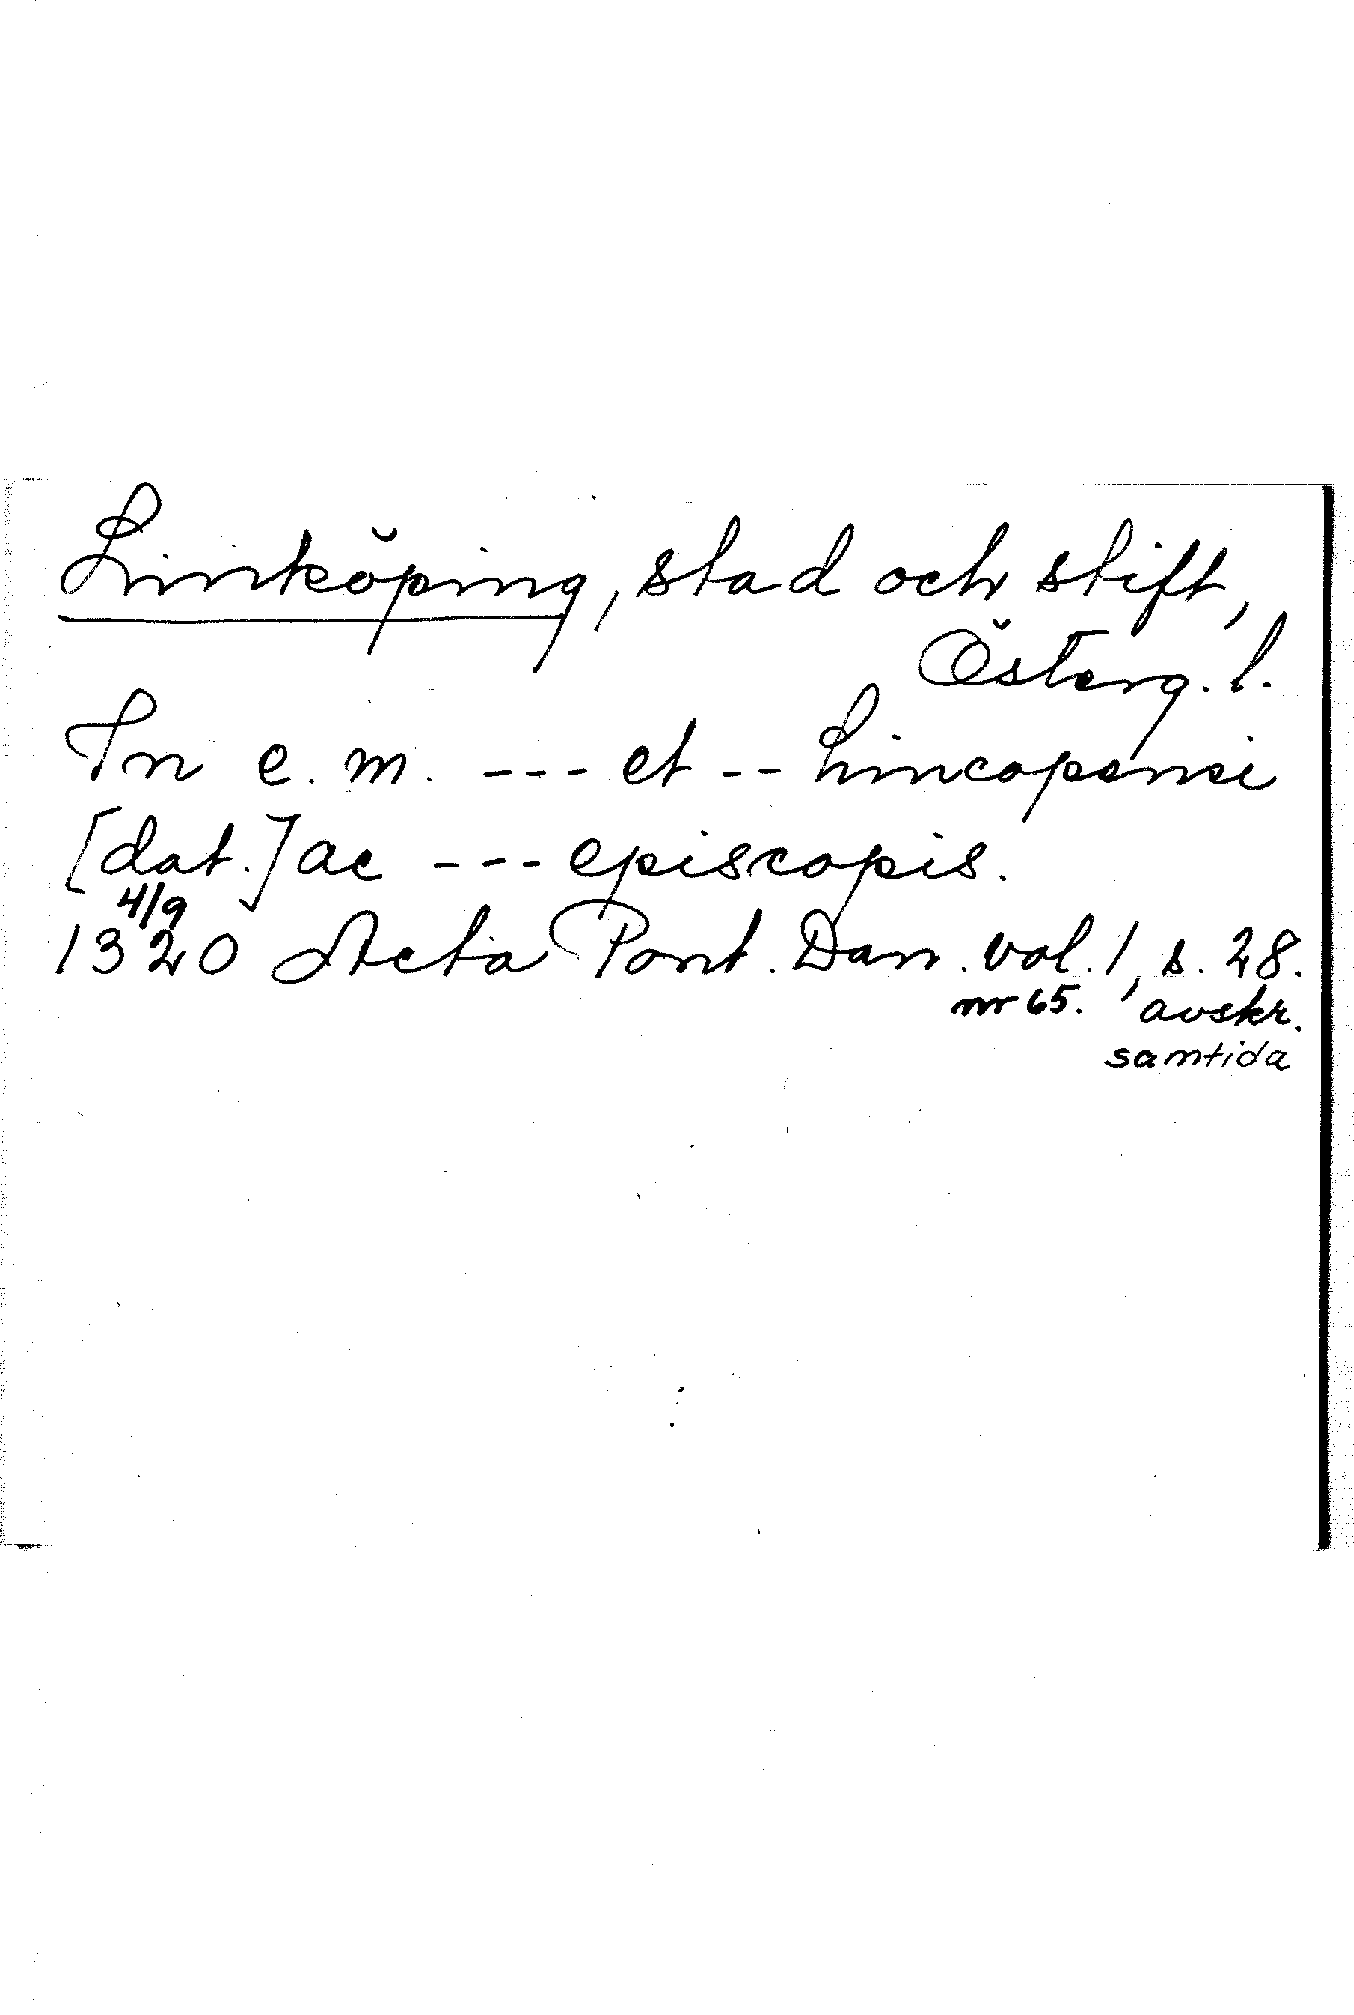 Linköping, stad och stift,
Österg. l.
In e. m. --- et -- Lincopensi
[dat.] ac --- episcopis.
4/9
1320 Acta Pont. Dan. vol. 1, s. 28.
nr 65. avskr.
samtida